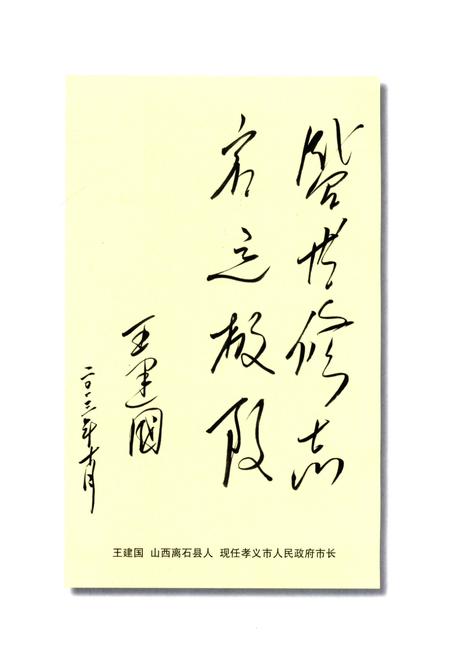 盛世修志
王建國
二〇一三年十月
王建国 山西离石县人 现任孝义市人民政府市长